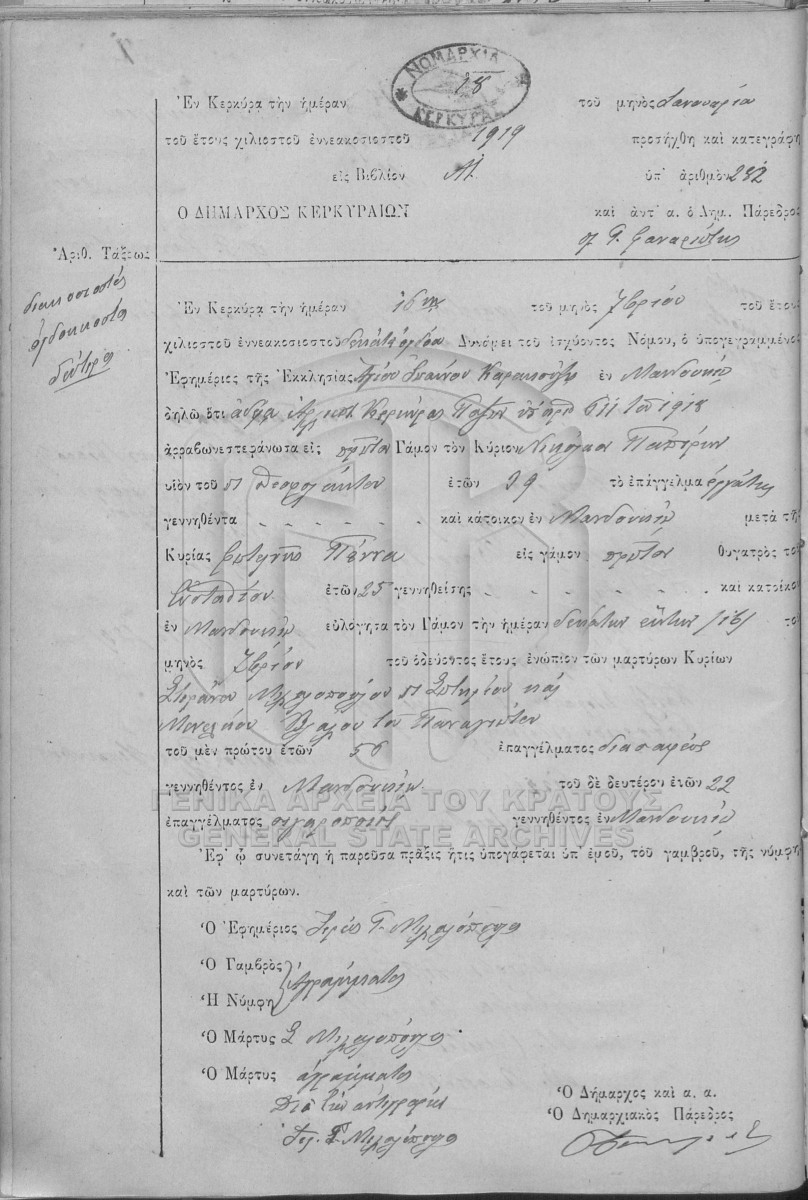 ΝΟΜΑΡΧΙΑ
ΚΕΡΚΥΡΑΣ
Ἐν Κερκύρᾳ τὴν ἡμέραν 18 τοῦ μηνὸς Ἰανουαρίου
τοῦ ἔτους χιλιοστοῦ ἐννεακοσιοστοῦ 1919 προσήχθη καὶ κατεγράφη
εἰς Βιβλίον Α! ὑπ' ἀριθμὸν 282
Ο ΔΗΜΑΡΧΟΣ ΚΕΡΚΥΡΑΙΩΝ καὶ ἀντ' α. ὁ Δημ. Πάρεδρος
Γ. Φαναριώτης
Ἀριθ. Τάξεως
διακοσιοστός
ὀγδοηκοστός
δεύτερος
Ἐν Κερκύρᾳ τὴν ἡμέραν 16ην τοῦ μηνὸς 7βρίου τοῦ ἔτους
χιλιοστοῦ ἐννεακοσιοστοῦ δεκάτου ὀγδόου Δυνάμει τοῦ ἰσχύοντος Νόμου, ὁ ὑπογεγραμμένος
Ἐφημέριος τῆς Ἐκκλησίας Ἁγίου ἐν Μανδουκίῳ
δηλῶ ὅτι ἀδείᾳ Κερκύρας Παξῶν ὑπ' ἀριθ. 611 τοῦ 1918
ἀρραβωνεστεφάνωσα εἰς πρῶτον Γάμον τὸν Κύριον Νικόλαον
υἱὸν τοῦ π Θεοφυλάκτου ἐτῶν 29 τὸ ἐπάγγελμα ἐργάτης
γεννηθέντα - - - - - - καὶ κάτοικον ἐν Μανδουκίῳ μετὰ τῆς
Κυρίας Φωτεινῆς Πέννα εἰς γάμον πρῶτον θυγατρὸς τοῦ
Εὐσταθίου ἐτῶν 25 γεννηθείσης - - - - - - καὶ κατοίκου
ἐν Μανδουκίῳ εὐλόγησα τὸν Γάμον τὴν ἡμέραν δεκάτην ἕκτην /16/ τοῦ
μηνὸς 7βρίου τοῦ ὁδεύοντος ἔτους ἐνώπιον τῶν μαρτύρων Κυρίων
Στεφάνου Μιχαλοπούλου π Σωτηρίου καὶ
Βλάχου τοῦ Παναγιώτου
τοῦ μὲν πρώτου ἐτῶν 56 ἐπαγγέλματος διασαφέως
γεννηθέντος ἐν Μανδουκίῳ τοῦ δὲ δευτέρου ἐτῶν 22
ἐπαγγέλματος σιγαροποιός γεννηθέντος ἐν Μανδουκίῳ
ΓΕΝΙΚΑ ΑΡΧΕΙΑ ΤΟΥ ΚΡΑΤΟΥΣ
GENERAL STATE ARCHIVES
Ἐφ' ᾧ συνετάγη ἡ παροῦσα πρᾶξις ἥτις ὑπογάφεται ὑπ' ἐμοῦ, τοῦ γαμβροῦ, τῆς νύμφης
καὶ τῶν μαρτύρων.
Ὁ Ἐφημέριος Ἱερεὺς Γ. Μιχαλόπουλος
Ὁ Γαμβρὸς
Ἀγράμματος
Ἡ Νύμφη
Ὁ Μάρτυς Σ Μιχαλόπουλος
Ὁ Μάρτυς ἀγράμματος
Διὰ τὴν ἀντιγραφὴν
Ἱερ. Γ. Μιχαλόπουλος
Ὁ Δήμαρχος καὶ α. α.
Ὁ Δημαρχιακὸς Πάρεδρος